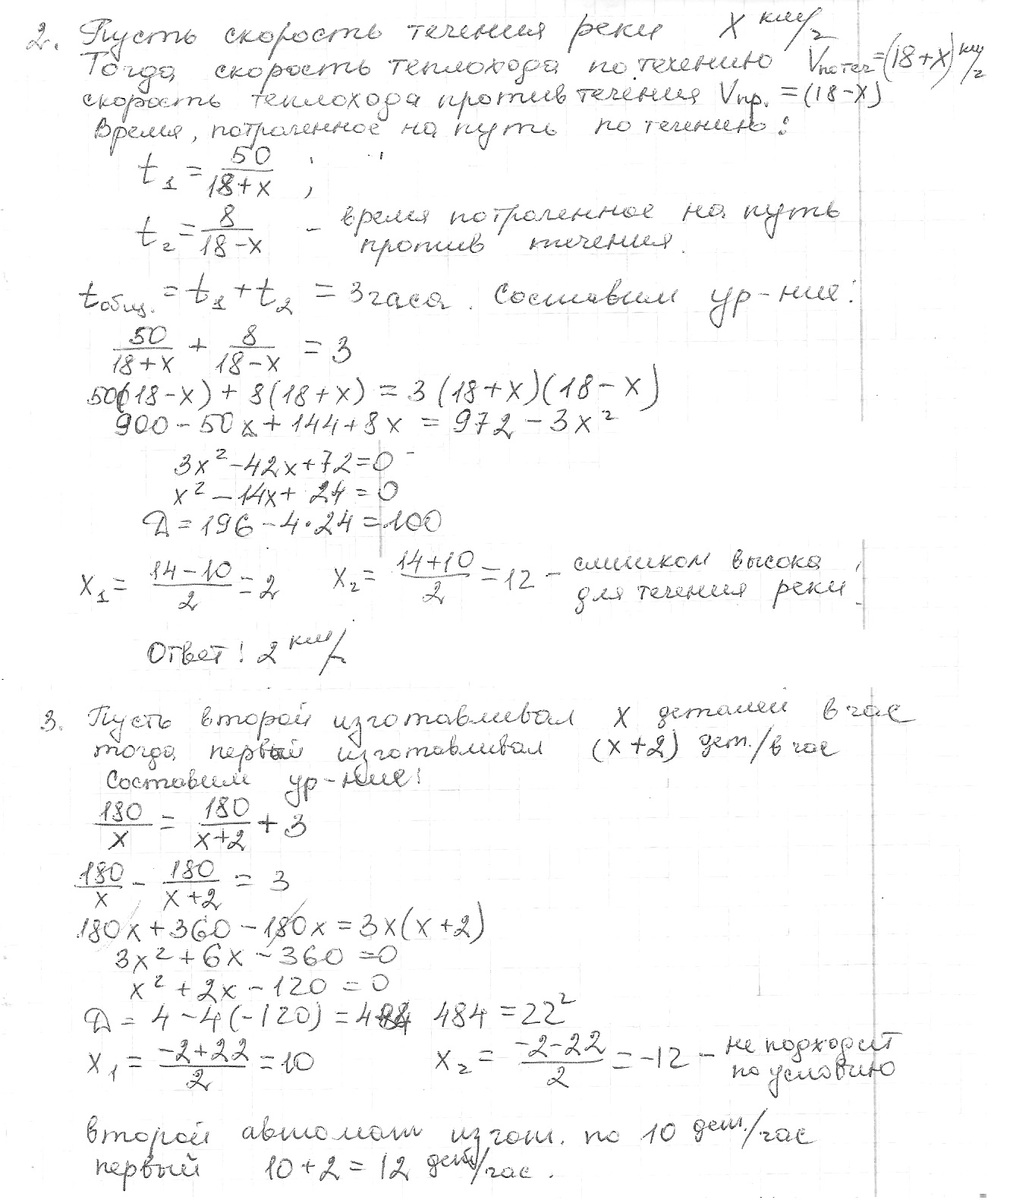 2. Пусть скорость течения реки x км/г
Тогда скорость теплохода по течению Vпо теч = (18+x) км/г
скорость теплохода против течения Vпр. = (18-x)
Время, потраченное на путь по течению:
t₁ = 50/(18+x) ;
t₂ = 8/(18-x) - время потраченное на путь
против течения.
tобщ. = t₁ + t₂ = 3 часа. Составим ур-ние:
50/(18+x) + 8/(18-x) = 3
50(18-x) + 8(18+x) = 3(18+x)(18-x)
900 - 50x + 144 + 8x = 972 - 3x²
3x² - 42x + 72 = 0
x² - 14x + 24 = 0
Д = 196 - 4·24 = 100
x₁ = (14-10)/2 = 2 x₂ = (14+10)/2 = 12 - слишком высока
для течения реки
Ответ: 2 км/г
3. Пусть второй изготавливал x деталей в час
тогда первый изготавливал (x+2) дет./в час
Составим ур-ние:
180/x = 180/(x+2) + 3
180/x - 180/(x+2) = 3
180x + 360 - 180x = 3x(x+2)
3x² + 6x - 360 = 0
x² + 2x - 120 = 0
Д = 4 - 4(-120) = 484 484 = 22²
x₁ = (-2+22)/2 = 10 x₂ = (-2-22)/2 = -12 - не подходит
по условию
второй автомат изгот. по 10 дет./час
первый 10+2 = 12 дет/час.